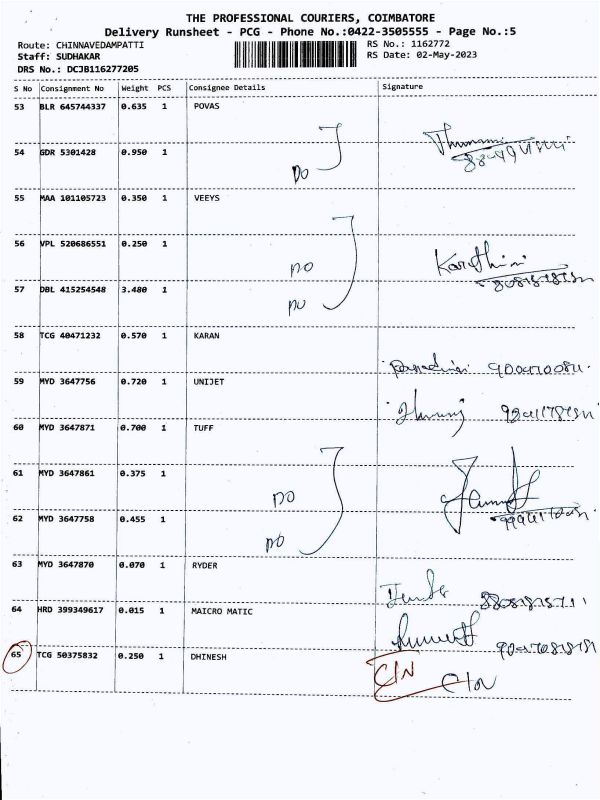 THE PROFESSIONAL COURIERS, COIMBATORE
Delivery Runsheet - PCG - Phone No.:0422-3505555 - Page No.:5
Route: CHINNAVEDAMPATTI RS No.: 1162772
Staff: SUDHAKAR RS Date: 02-May-2023
DRS No.: DCJB116277205
S No Consignment No Weight PCS Consignee Details Signature
53 BLR 645744337 0.635 1 POVAS
54 GDR 5301428 0.950 1
DO
55 MAA 101105723 0.350 1 VEEYS
56 VPL 520686551 0.250 1
DO
57 DBL 415254548 3.480 1
DO
58 TCG 40471232 0.570 1 KARAN
59 MYD 3647756 0.720 1 UNIJET
60 MYD 3647871 0.700 1 TUFF
61 MYD 3647861 0.375 1
DO
62 MYD 3647758 0.455 1
DO
63 MYD 3647870 0.070 1 RYDER
64 HRD 399349617 0.015 1 MAICRO MATIC
65 TCG 50375832 0.250 1 DHINESH
C/N
C/N